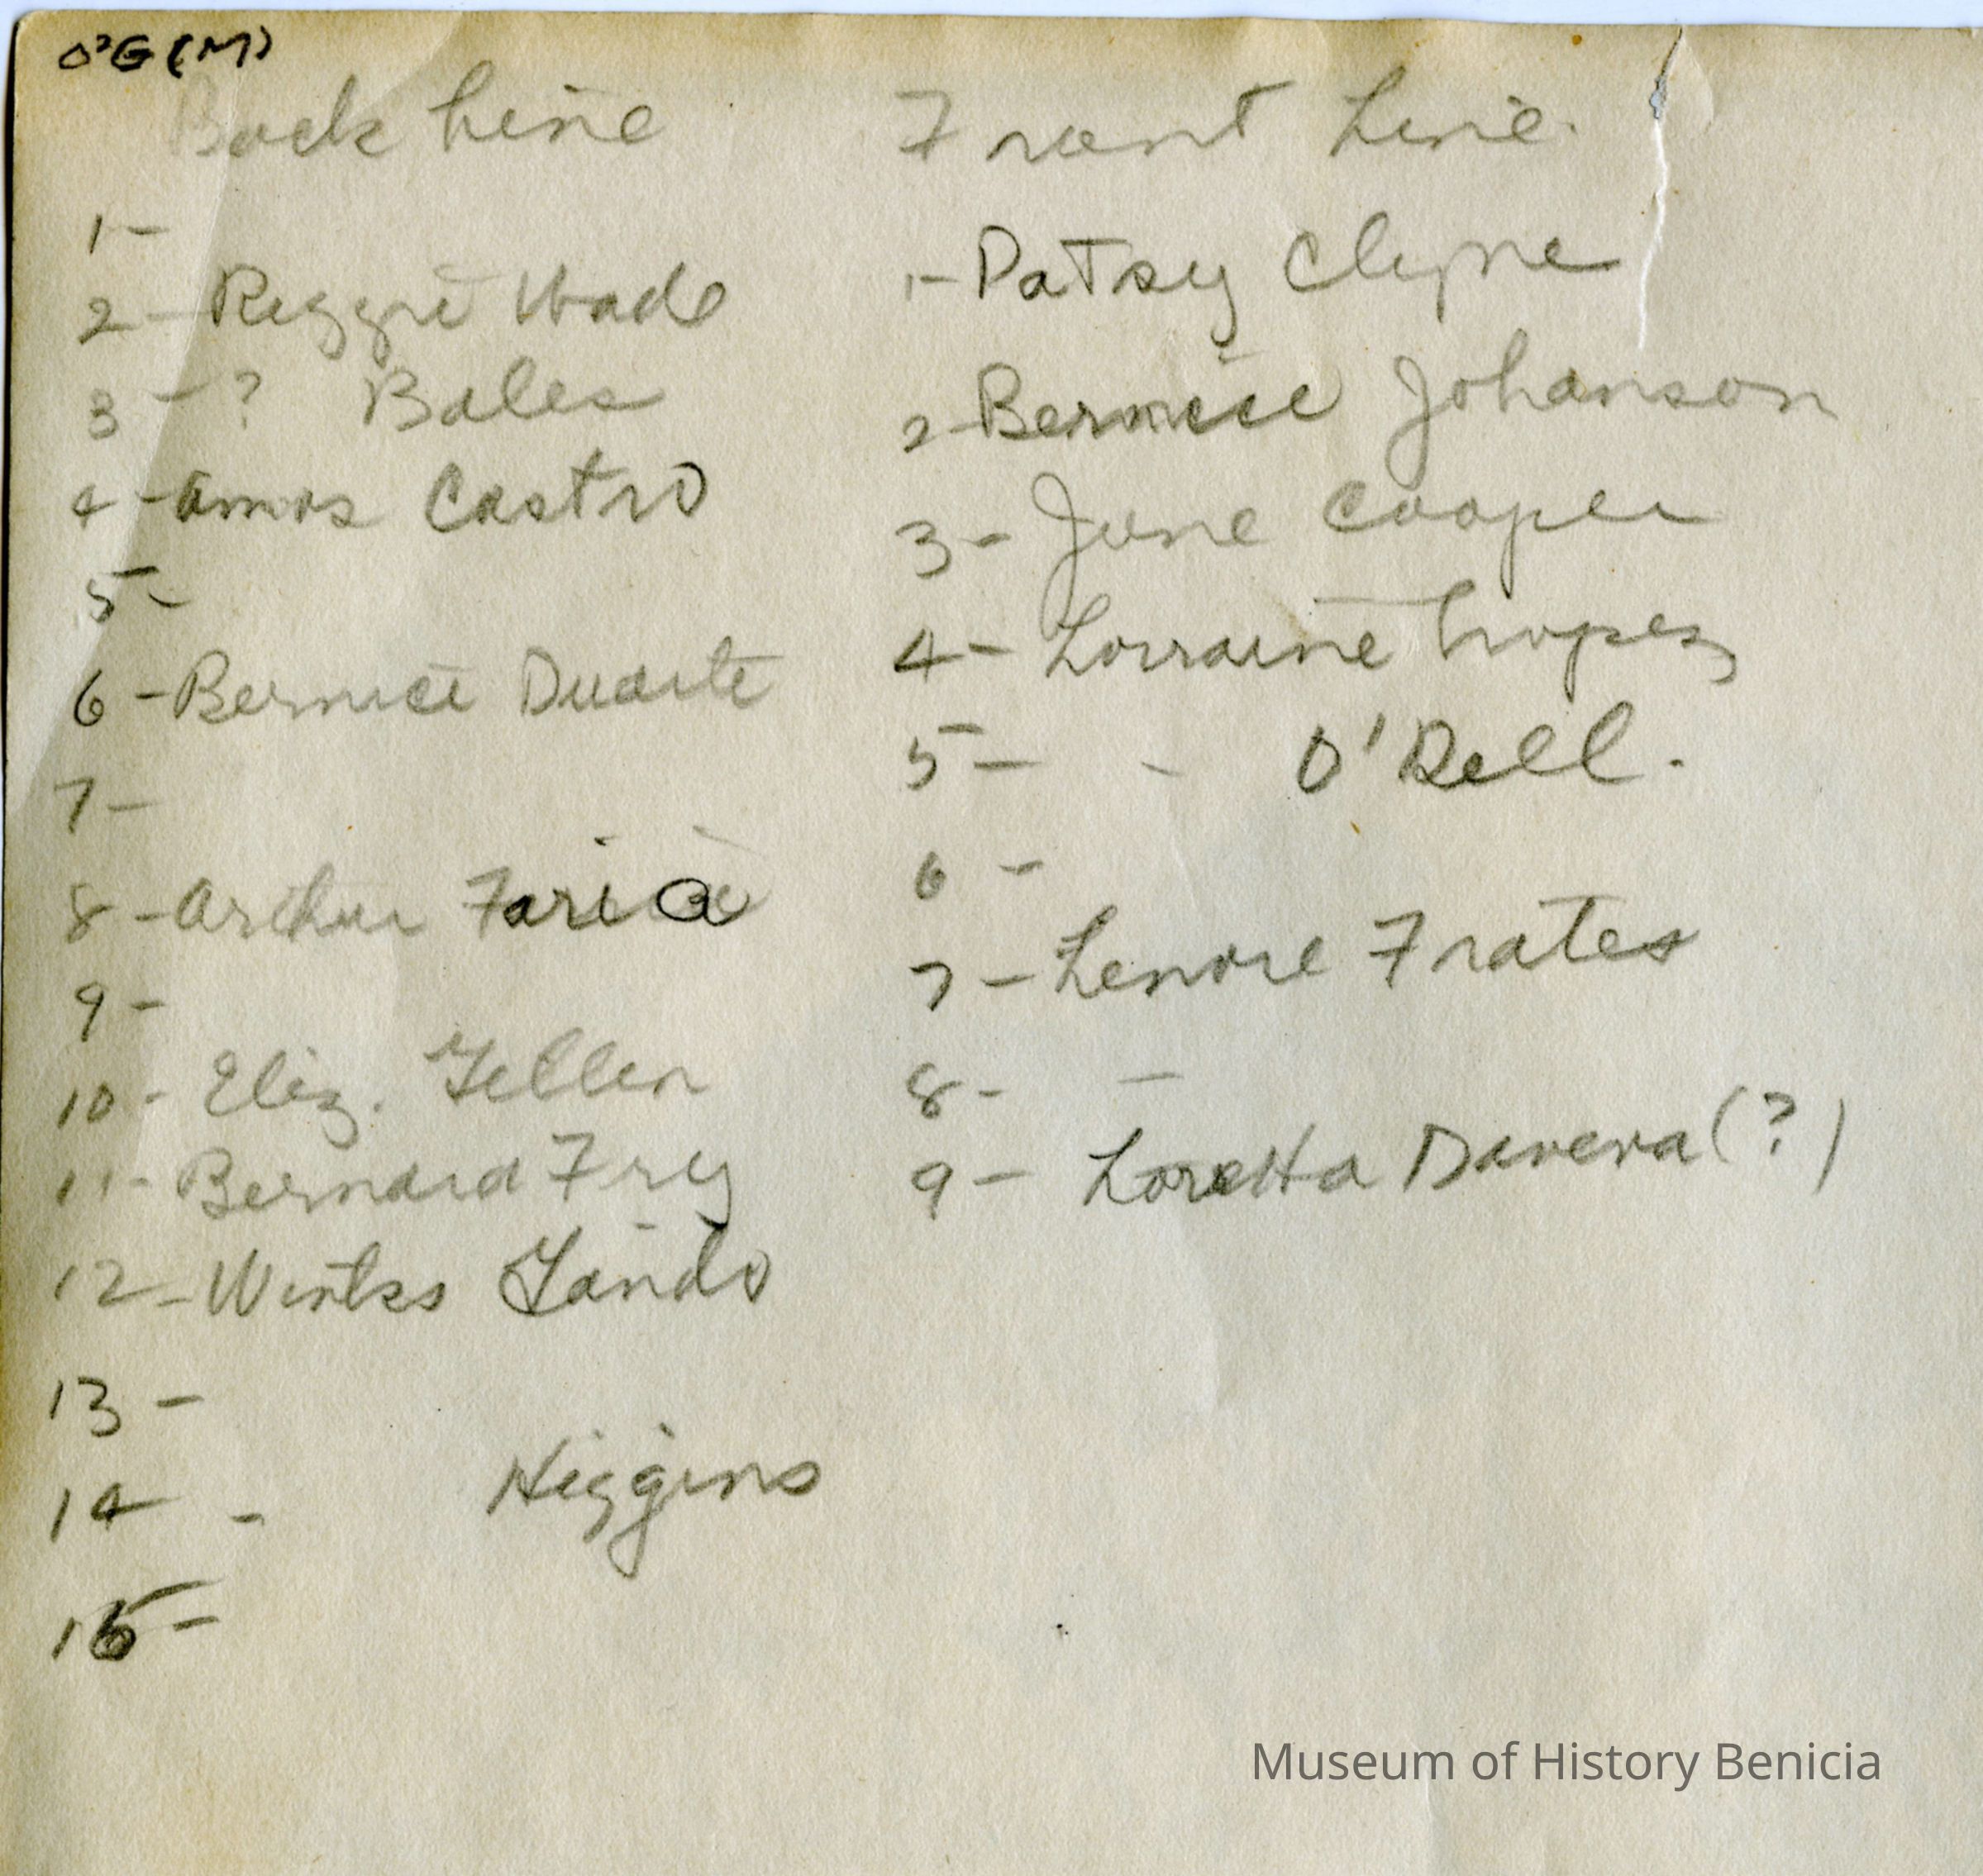 O'G (M)
Back Line
1-
2- Reggie Wade
3- ? Bales
4- Amos Castro
5-
6- Bernice Duarte
7-
8- Arthur Faria
9-
10- Eliz. Gellen
11- Bernard Fry
12- Lando
13-
14- - Higgins
15-
Front Line.
1- Patsy Clyne
2- Bernice Johanson
3- June Cooper
4- Lorraine Lopez
5- - O'Dell.
6-
7- Lenore Frates
8- -
9- Loretta Davena (?)
Museum of History Benicia